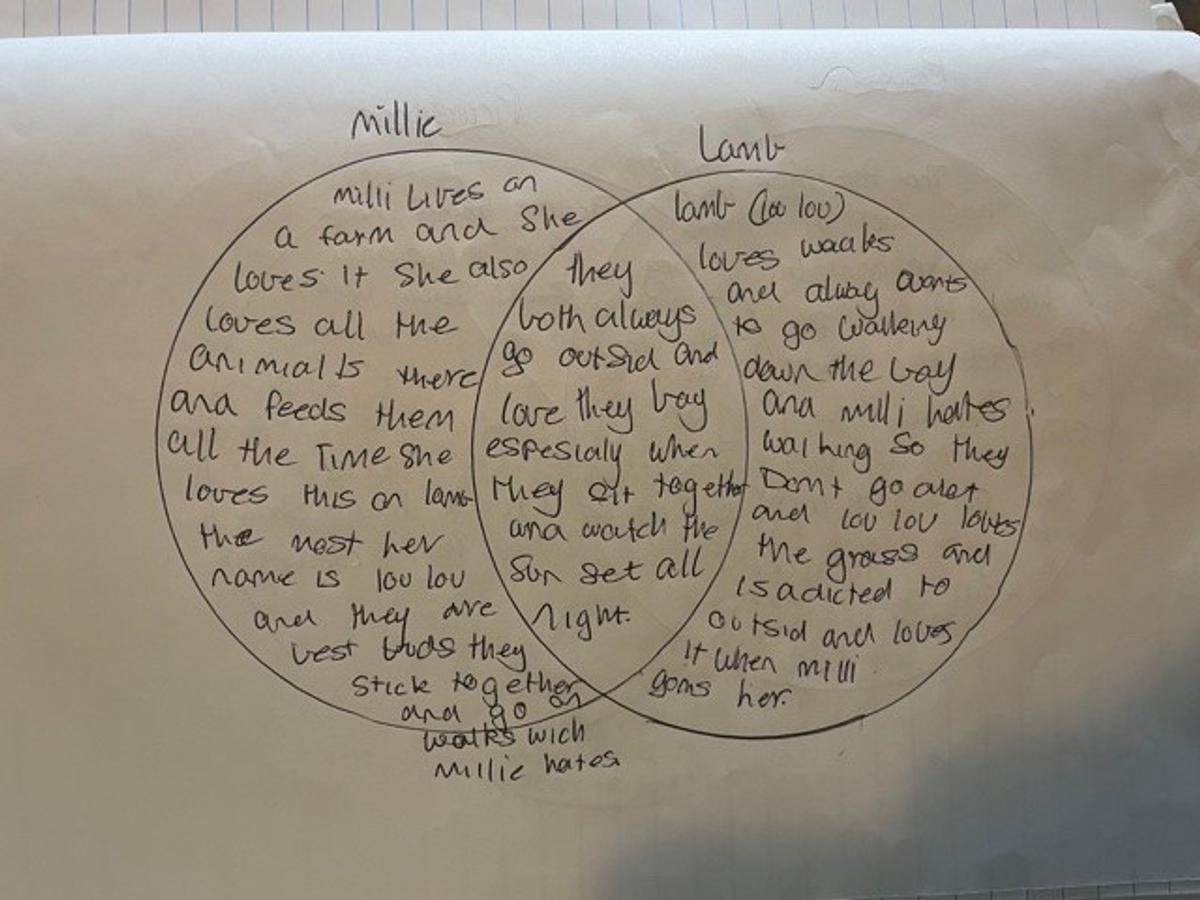 Millie
milli Lives on
a farm and She
loves it She also
loves all the
animialls there
and feeds them
all the Time she
loves this on lamb
the most her
name is lou lou
and they are
best buds they
stick together
and go on
walks wich
Millie hates
they
both always
go outsid and
love they bay
espesialy when
they sit together
and watch the
Sun set all
night.
Lamb
lamb (lou lou)
loves waalks
and alway wants
to go walking
down the bay
and milli hates
walking so they
Don't go alot
and lou lou loves
the grass and
is adicted to
outsid and loves
it when milli
goms her.